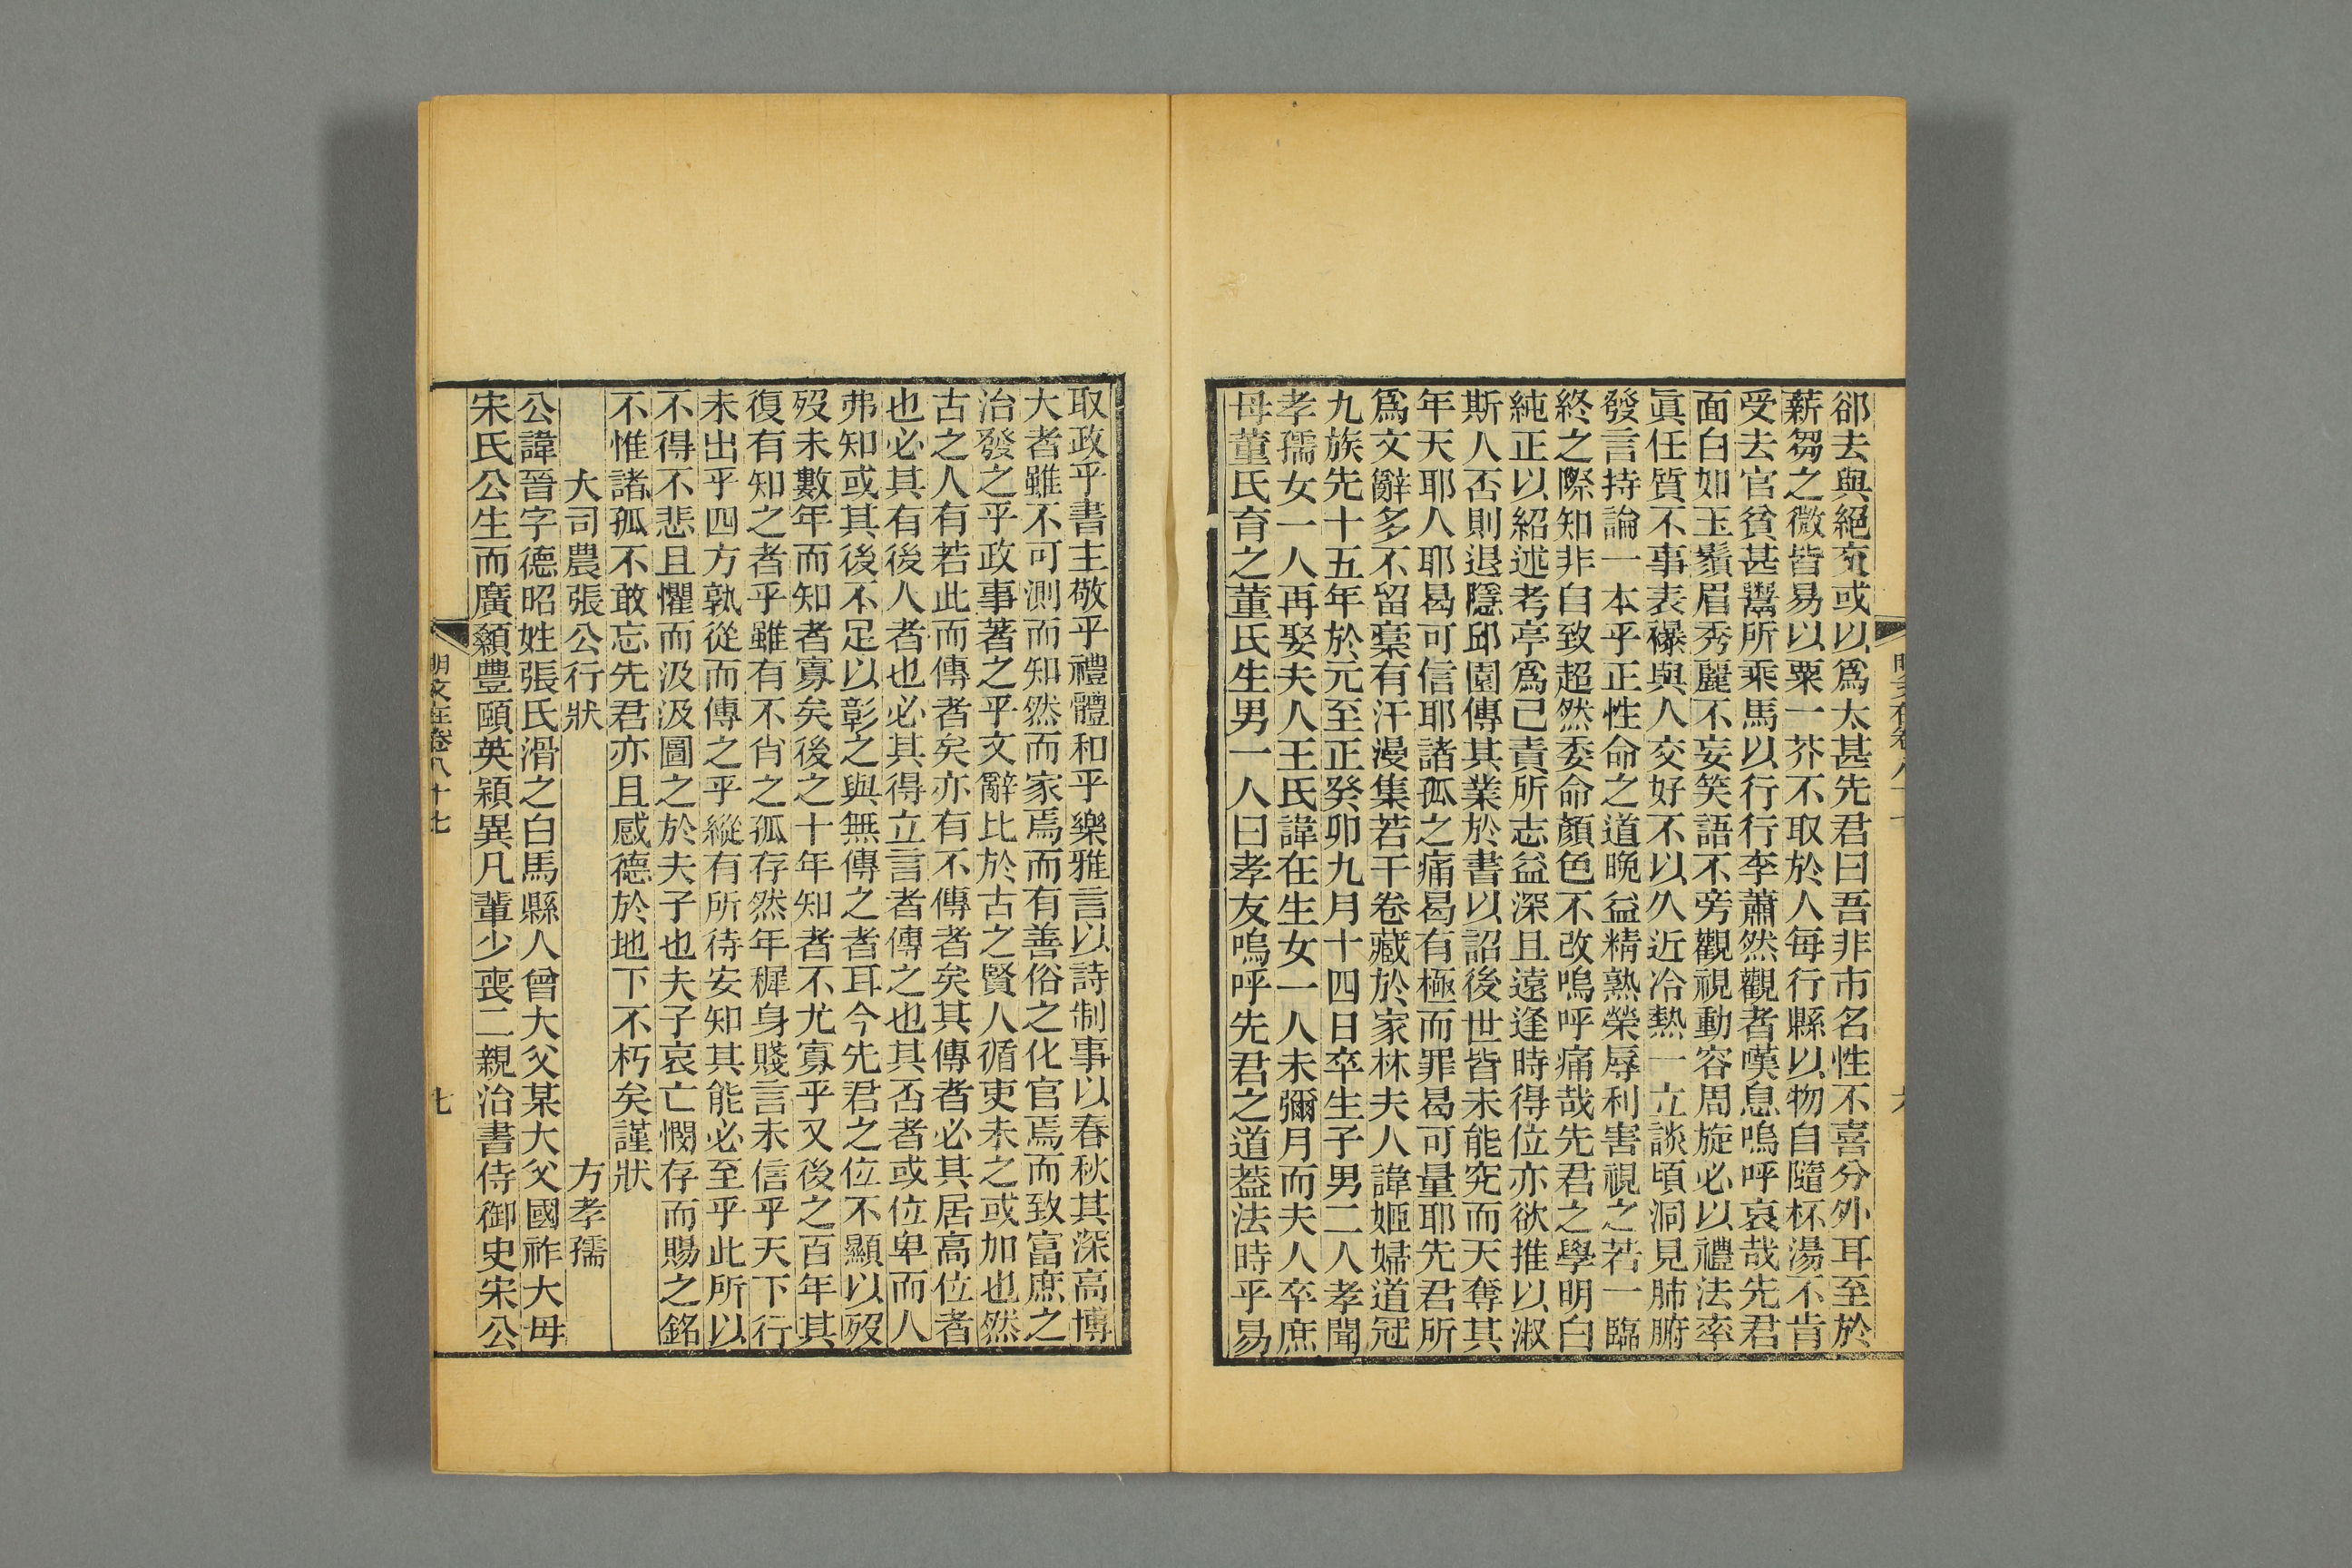 郤去與絕交或以爲太甚先君曰吾非市名性不喜分外耳至於
薪芻之微皆易以粟一芥不取於人每行縣以物自隨杯湯不肯
受去官貧甚鬻所乘馬以行行李蕭然觀者嘆息嗚呼哀哉先君
面白如玉鬚眉秀麗不妄笑語不旁觀視動容周旋必以禮法率
眞任質不事表襮與人交好不以久近冷熱一立談頃洞見肺腑
發言持論一本乎正性命之道晚益精熟榮辱利害視之若一臨
終之際知非自致超然委命顏色不改嗚呼痛哉先君之學明白
純正以紹述考亭爲己責所志益深且遠逢時得位亦欲推以淑
斯人否則退隱邱園傳其業於書以詔後世皆未能究而天奪其
年天耶人耶曷可信耶諸孤之痛曷有極而罪曷可量耶先君所
爲文辭多不留稾有汗漫集若干卷藏於家林夫人諱姬婦道冠
九族先十五年於元至正癸卯九月十四日卒生子男二人孝聞
孝孺女一人再娶夫人王氏諱在生女一人未彌月而夫人卒庶
母董氏育之董氏生男一人曰孝友嗚呼先君之道葢法時乎易
取政乎書主敬乎禮體和乎樂雅言以詩制事以春秋其深高博
大者雖不可測而知然而家焉而有善俗之化官焉而致富庶之
治發之乎政事著之乎文辭比於古之賢人循吏未之或加也然
古之人有若此而傳者矣亦有不傳者矣其傳者必其居高位者
也必其有後人者也必其得立言者傳之也其否者或位卑而人
弗知或其後不足以彰之與無傳之者耳今先君之位不顯以歿
歿未數年而知者寡矣後之十年知者不尤寡乎又後之百年其
復有知之者乎雖有不肖之孤存然年穉身賤言未信乎天下行
未出乎四方孰從而傳之乎縱有所待安知其能必至乎此所以
不得不悲且懼而汲汲圖之於夫子也夫子哀亡憫存而賜之銘
不惟諸孤不敢忘先君亦且感德於地下不朽矣謹狀
大司農張公行狀 方孝孺
公諱晉字德昭姓張氏滑之白馬縣人曾大父某大父國祚大母
宋氏公生而廣顙豐頤英穎異凡輩少喪二親治書侍御史宋公
明文在卷八十七 七